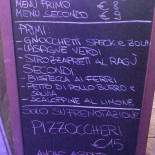 MENU PRIMO € 8
MENU SECONDO € 9
PRIMI:
- GNOCCHETTI SPECK E ZOLA
- LASAGNE VERDI
- STROZZAPRETI AL RAGÙ
SECONDI:
- BISTECCA AI FERRI
- PETTO DI POLLO BURRO E
SALVIA
- SCALOPPINE AL LIMONE
SOLO SU PRENOTAZIONE
PIZZOCCHERI
€ 15
ANCHE ASPORTO